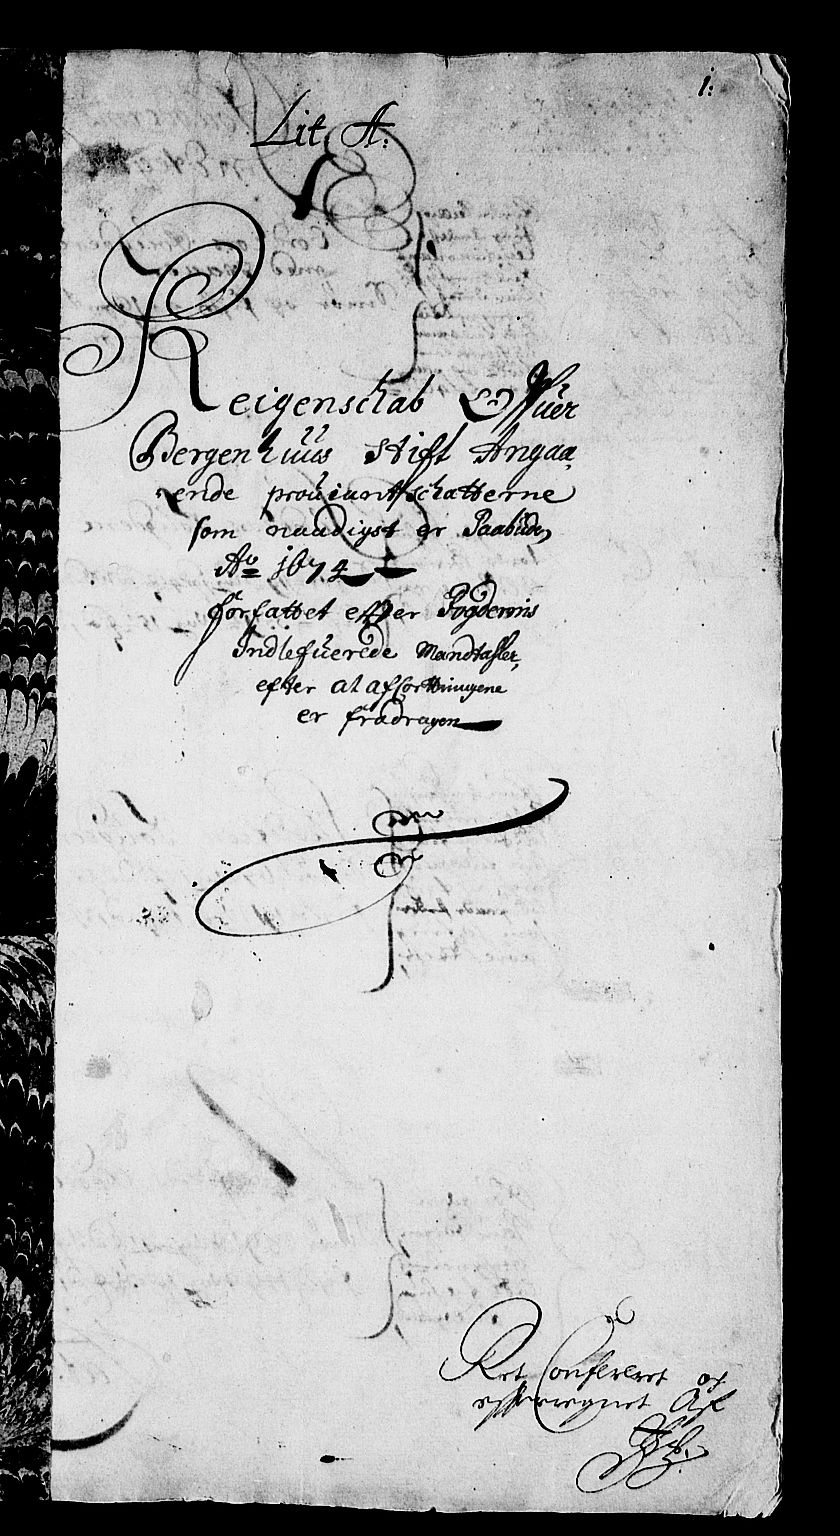 1:
Lit A:
Reigenschab Offuer
Bergenhuus Stift Angaa,
ende prouiantschatterne
som naadigst er Paabüden
Ao 1674
forfattet effter Fogdernis
Indlefuerede Mandtaller,
efter at afkorttningene
er fradragen
Ret Confereret og
effterregnet Af